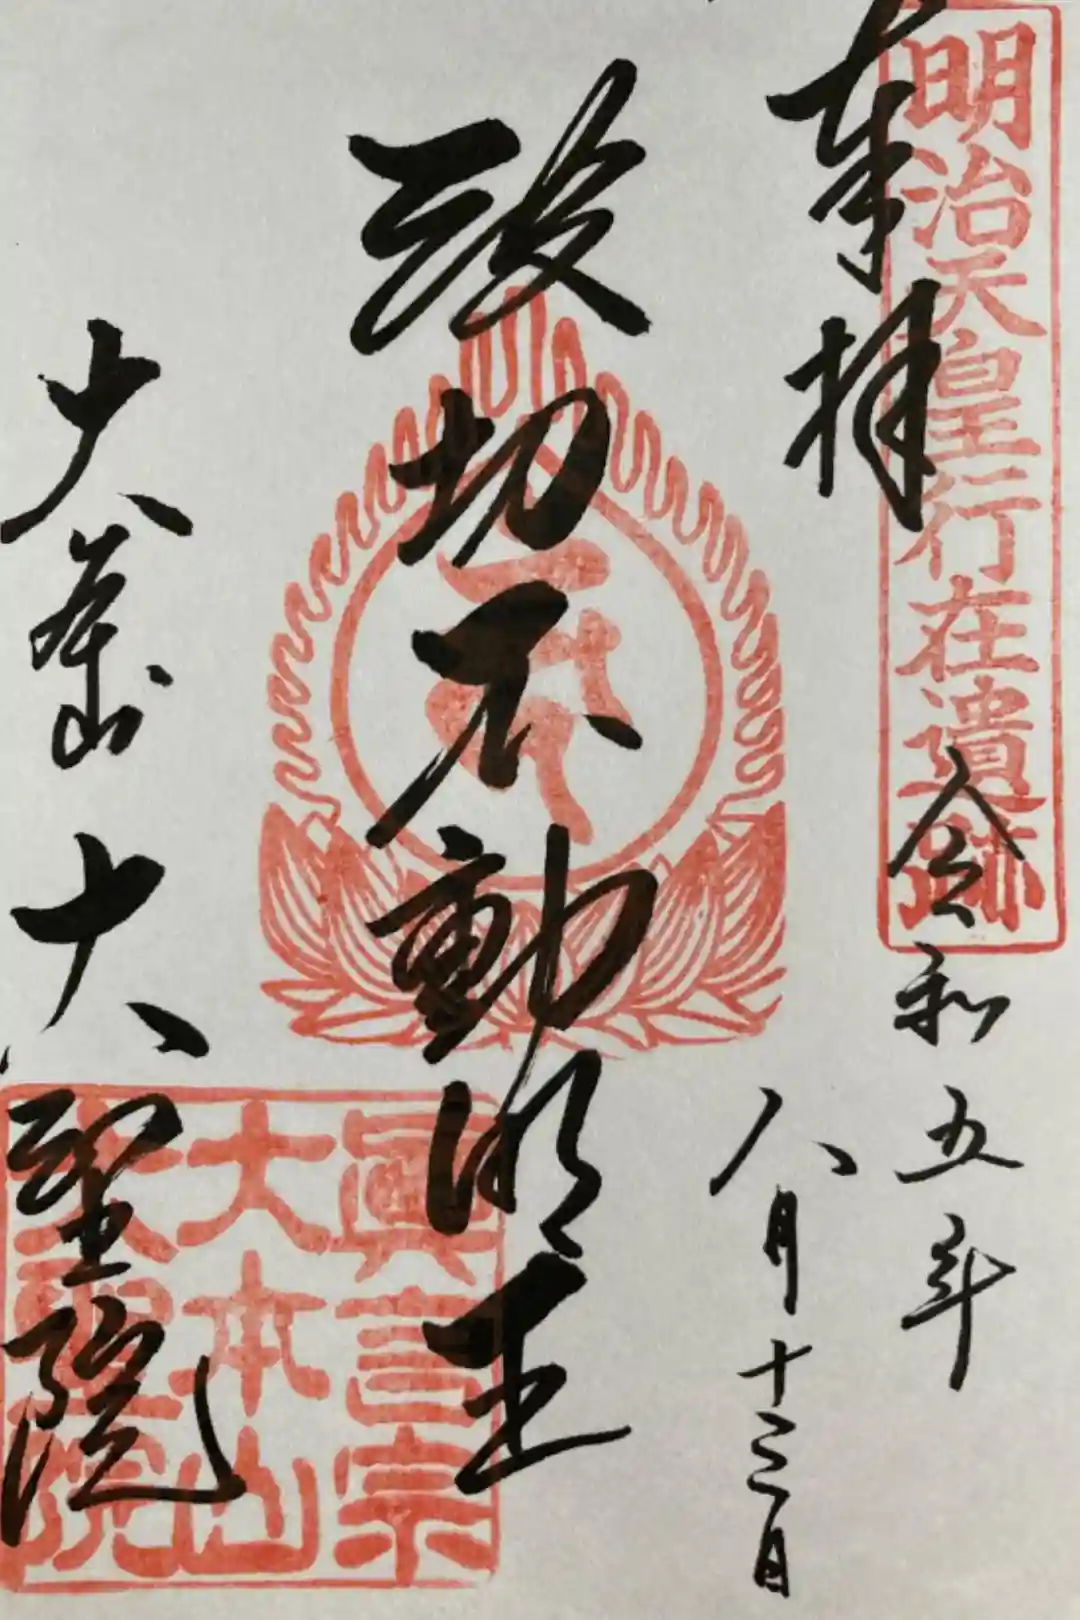 明治天皇行在遺跡
奉拝
令和五年
八月十三日
波切不動明王
大本山
大聖院
眞言宗
大本山
大聖院